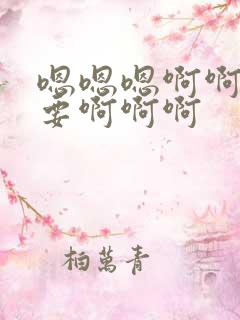 嗯嗯嗯啊啊
要啊啊啊
柏萬青